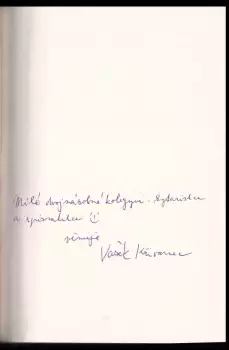 Milé dvojnásobné kolegyni - kytaristce
a spisovatelce (!)
věnuje
Vašek